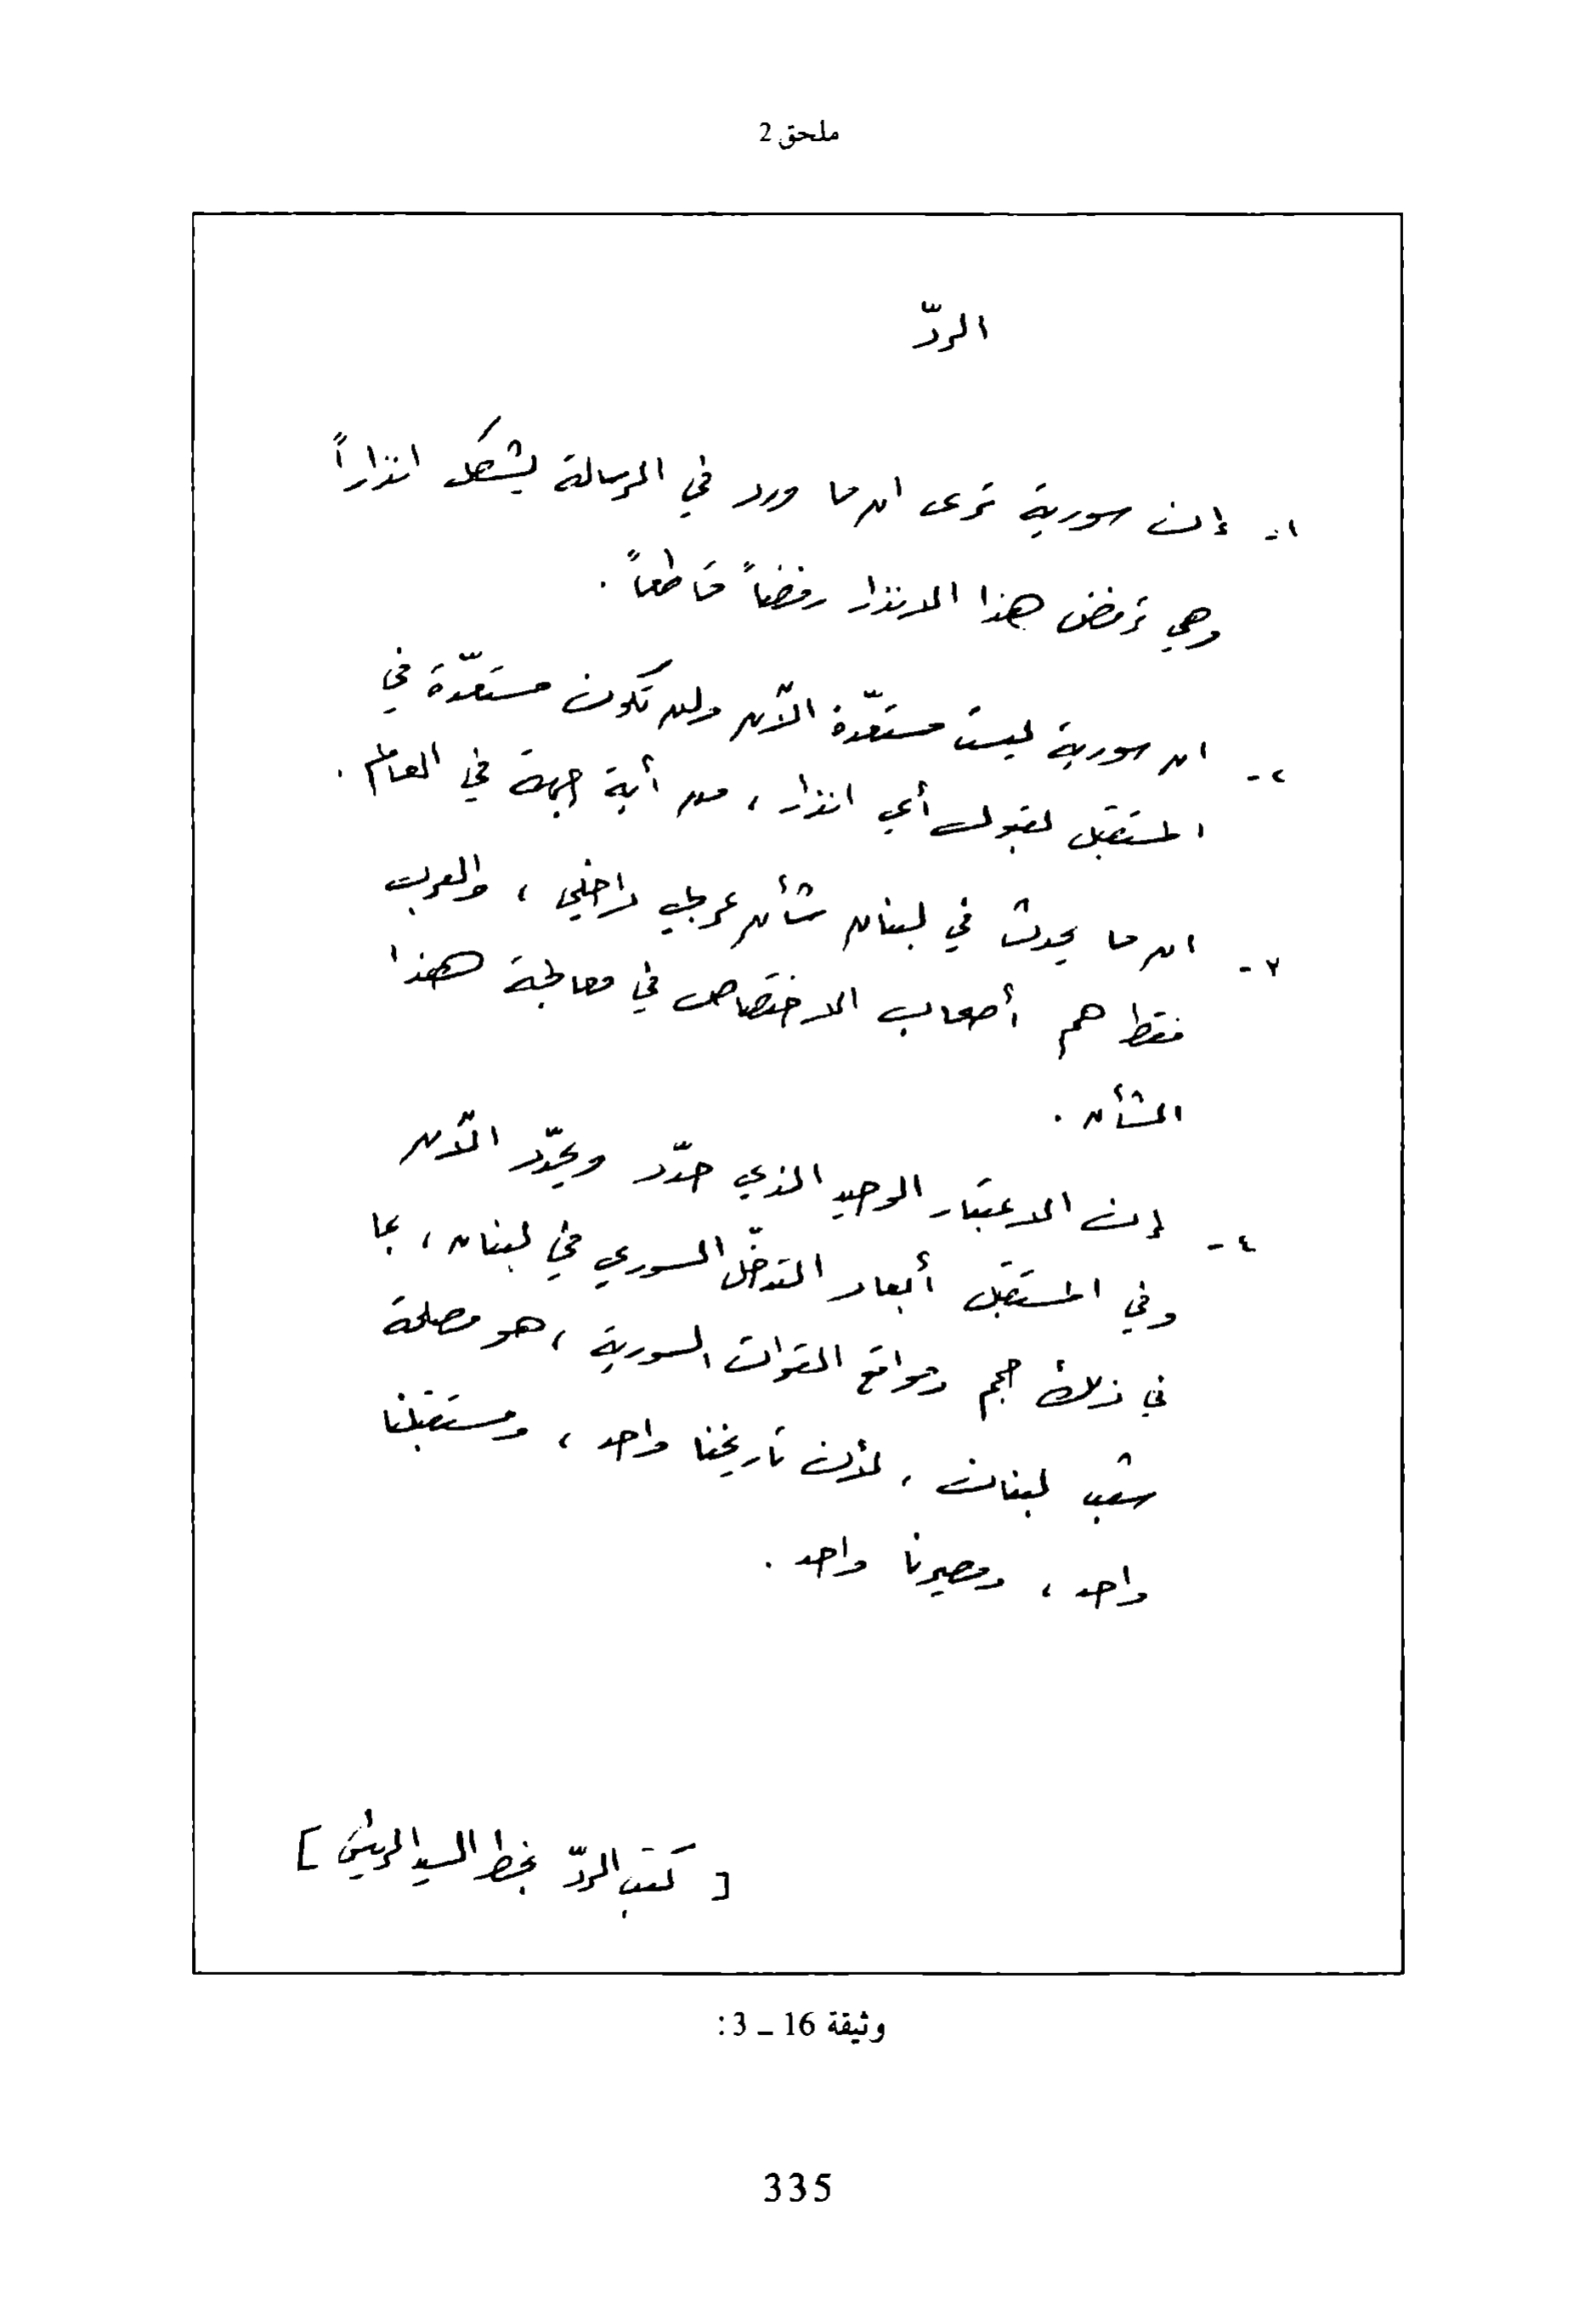 ملحق 2
الردّ
١- إن سورية ترى ان ما ورد في الرسالة يشكل انذاراً
وهي ترفض هذا الانذار رفضاً قاطعاً .
٢- ان سورية ليست مستعدّة الآن ولن تكون مستعدّة في
المستقبل لقبول أي انذار ، من أية جهة في العالم .
٣- ان ما يحدث في لبنان شأن عربي داخلي ، والعرب
فقط هم أصحاب الاختصاص في معالجة هذا
الشأن .
٤- إن الاعتبار الوحيد الذي حدّد ويحدّد الآن
وفي المستقبل أبعاد التدخّل السوري في لبنان ، بما
في ذلك حجم ومواقع القوات السورية ، هو مصلحة
شعب لبنان ، لأن تاريخنا واحد ، ومستقبلنا
واحد ، ومصيرنا واحد .
[ كتب الردّ بخط السيد الرئيس ]
وثيقة 16 ـ 3:
335